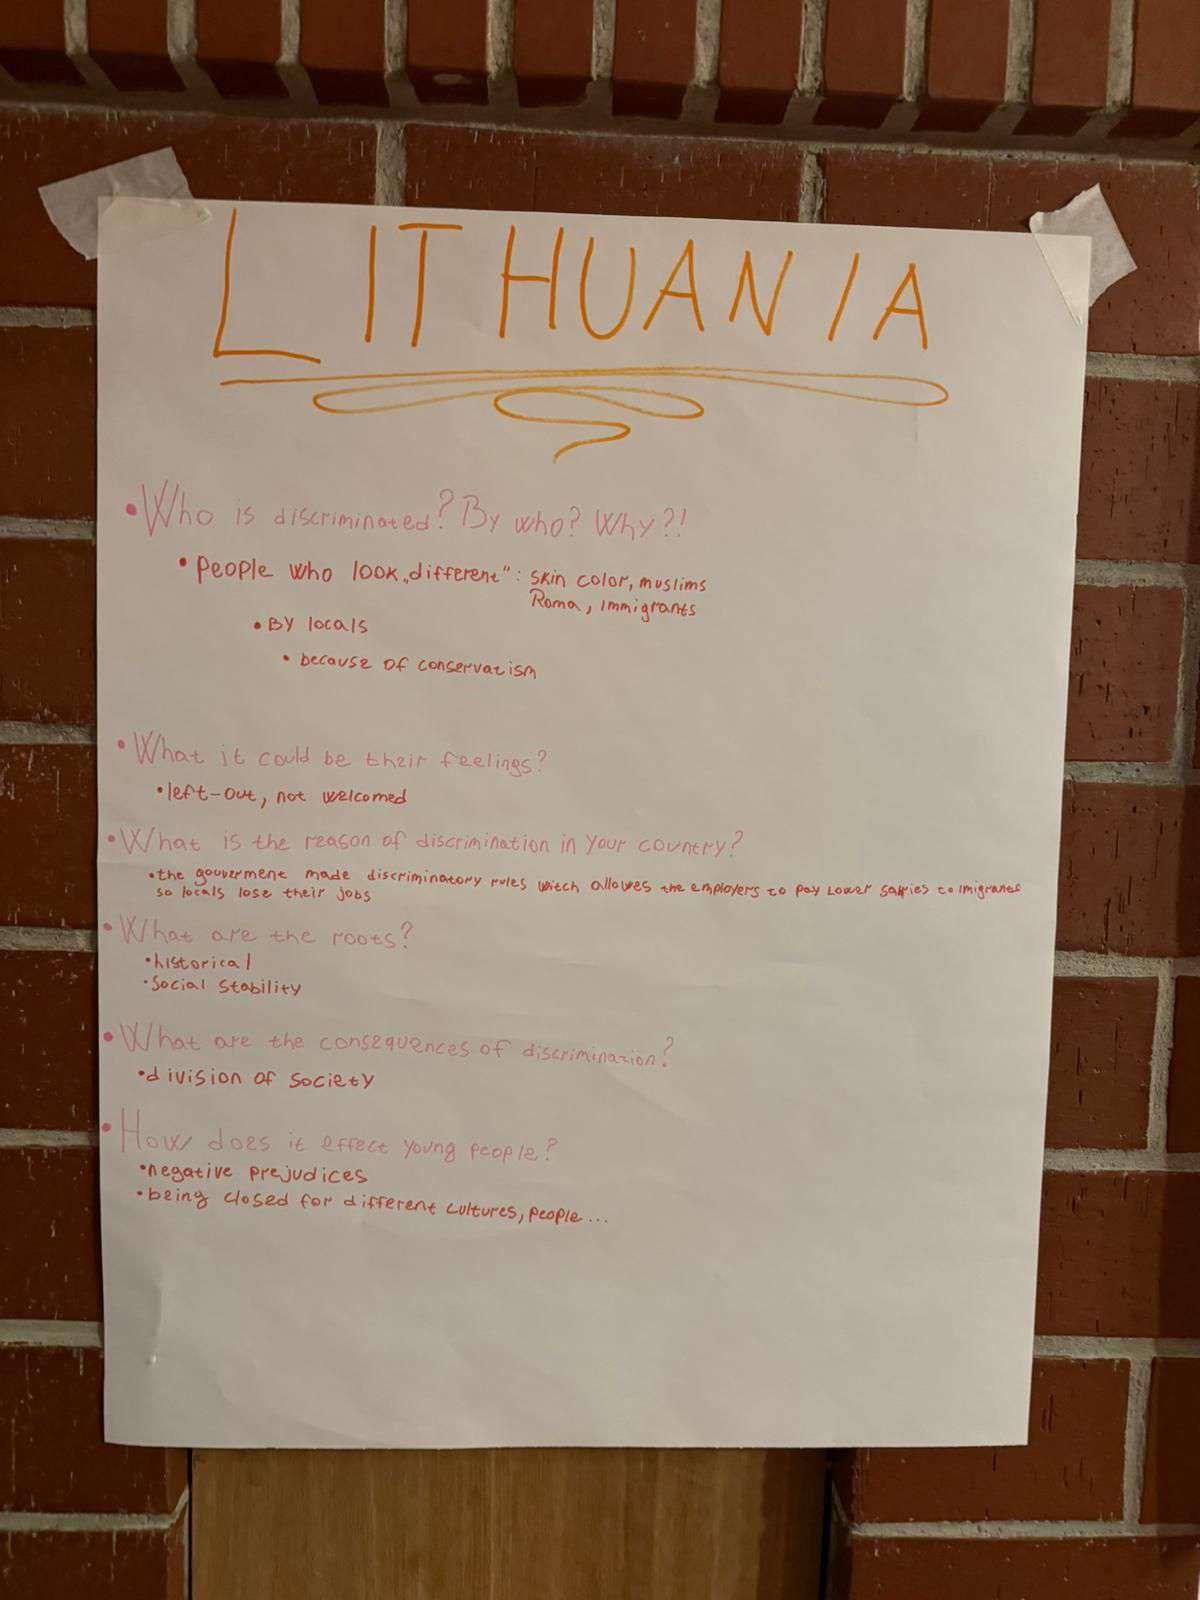 LITHUANIA
• Who is discriminated? By who? Why?!
• People who look „different“: skin color, muslims
Roma, immigrants
• By locals
• because of conservatism
• What it could be their feelings?
• left-out, not welcomed
• What is the reason of discrimination in your country?
• the gouverment made discriminatory rules witch allowes the employers to pay lower to imigrants
so locals lose their jobs
• What are the roots?
• historical
• Social stability
• What are the consequences of discrimination?
• division of society
• How does it effect young people?
• negative prejudices
• being closed for different cultures, people...